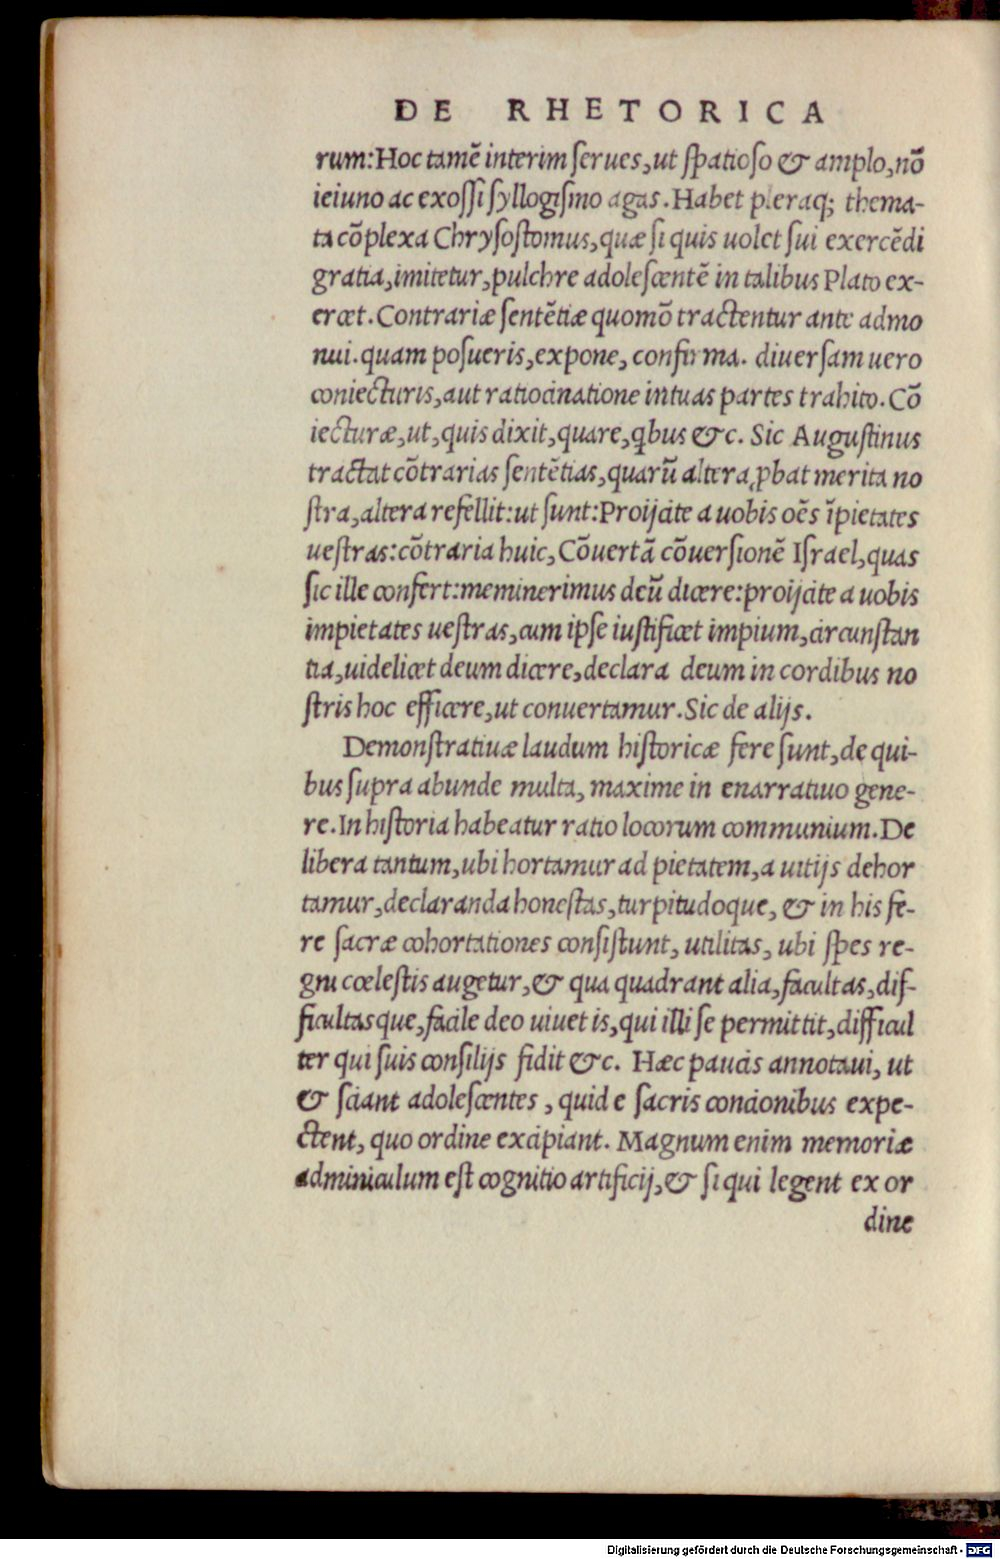 DE RHETORICA
rum: Hoc tamẽ interim serues, ut spatioso & amplo, nõ
ieiuno ac exossi syllogismo agas. Habet pleraq; thema-
ta cõplexa Chrysostomus, quæ si quis uolet sui exercẽdi
gratia, imitetur, pulchre adolescentẽ in talibus Plato ex-
ercet. Contrariæ sentẽtiæ quomõ tractentur ante admo
nui. quam posueris, expone, confirma. diuersam uero
coniecturis, aut ratiocinatione in tuas partes trahito. Cõ
iecturæ, ut, quis dixit, quare, qbus &c. Sic Augustinus
tractat cõtrarias sentẽtias, quarũ altera ꝓbat merita no
stra, altera refellit: ut sunt: Proijcite a uobis oẽs ĩpietates
uestras: cõtraria huic, Cõuertã cõuersionẽ Israel, quas
sic ille confert: meminerimus deũ dicere: proijcite a uobis
impietates uestras, cum ipse iustificet impium, circunstan
tia, uidelicet deum dicere, declara deum in cordibus no
stris hoc efficere, ut conuertamur. Sic de alijs.
Demonstratiuæ laudum historicæ fere sunt, de qui-
bus supra abunde multa, maxime in enarratiuo gene-
re. In historia habeatur ratio locorum communium. De
libera tantum, ubi hortamur ad pietatem, a uitijs dehor
tamur, declaranda honestas, turpitudoque, & in his fe-
re sacræ cohortationes consistunt, utilitas, ubi spes re-
gni cœlestis augetur, & qua quadrant alia, facultas, dif-
ficultasque, facile deo uiuet is, qui illi se permittit, difficul
ter qui suis consilijs fidit &c. Hæc paucis annotaui, ut
& sciant adolescentes, quid e sacris concionibus expe-
ctent, quo ordine excipiant. Magnum enim memoriæ
adminiculum est cognitio artificij, & si qui legent ex or
dine
Digitalisierung gefördert durch die Deutsche Forschungsgemeinschaft - DFG